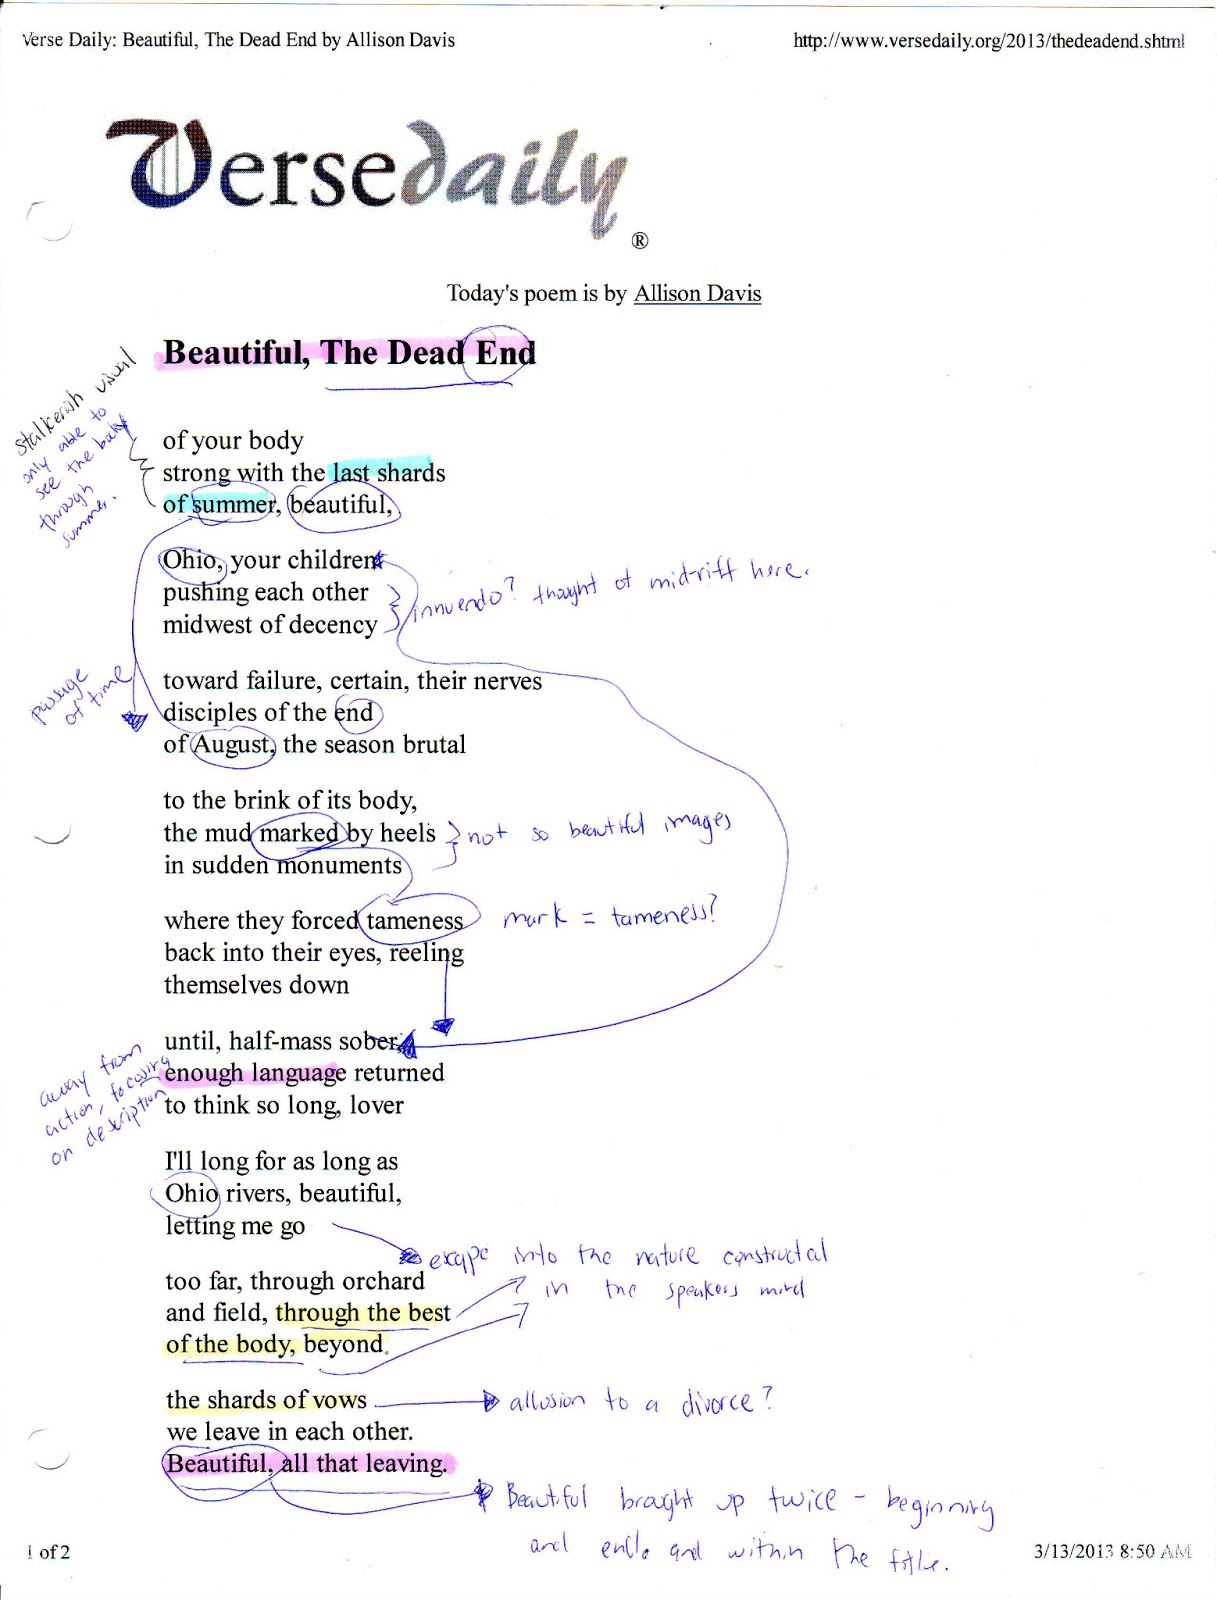 Verse Daily: Beautiful, The Dead End by Allison Davis
http://www.versedaily.org/2013/thedeadend.shtml
Versedaily
®
Today's poem is by Allison Davis
Beautiful, The Dead End
stalkerish visual
only able to
see the body
through
summer.
of your body
strong with the last shards
of summer, beautiful,
Ohio, your children
pushing each other
midwest of decency
innuendo? thought of mid-riff here.
toward failure, certain, their nerves
disciples of the end
of August, the season brutal
passage
of time
to the brink of its body,
the mud marked by heels
in sudden monuments
not so beautiful images
where they forced tameness
back into their eyes, reeling
themselves down
mark = tameness?
until, half-mass sober,
enough language returned
to think so long, lover
away from
action, focusing
on description
I'll long for as long as
Ohio rivers, beautiful,
letting me go
escape into the nature constructal
in the speakers mind
too far, through orchard
and field, through the best
of the body, beyond
the shards of vows
we leave in each other.
Beautiful, all that leaving.
allusion to a divorce?
Beautiful brought up twice - beginning
and end. and within the title.
1 of 2
3/13/2013 8:50 AM